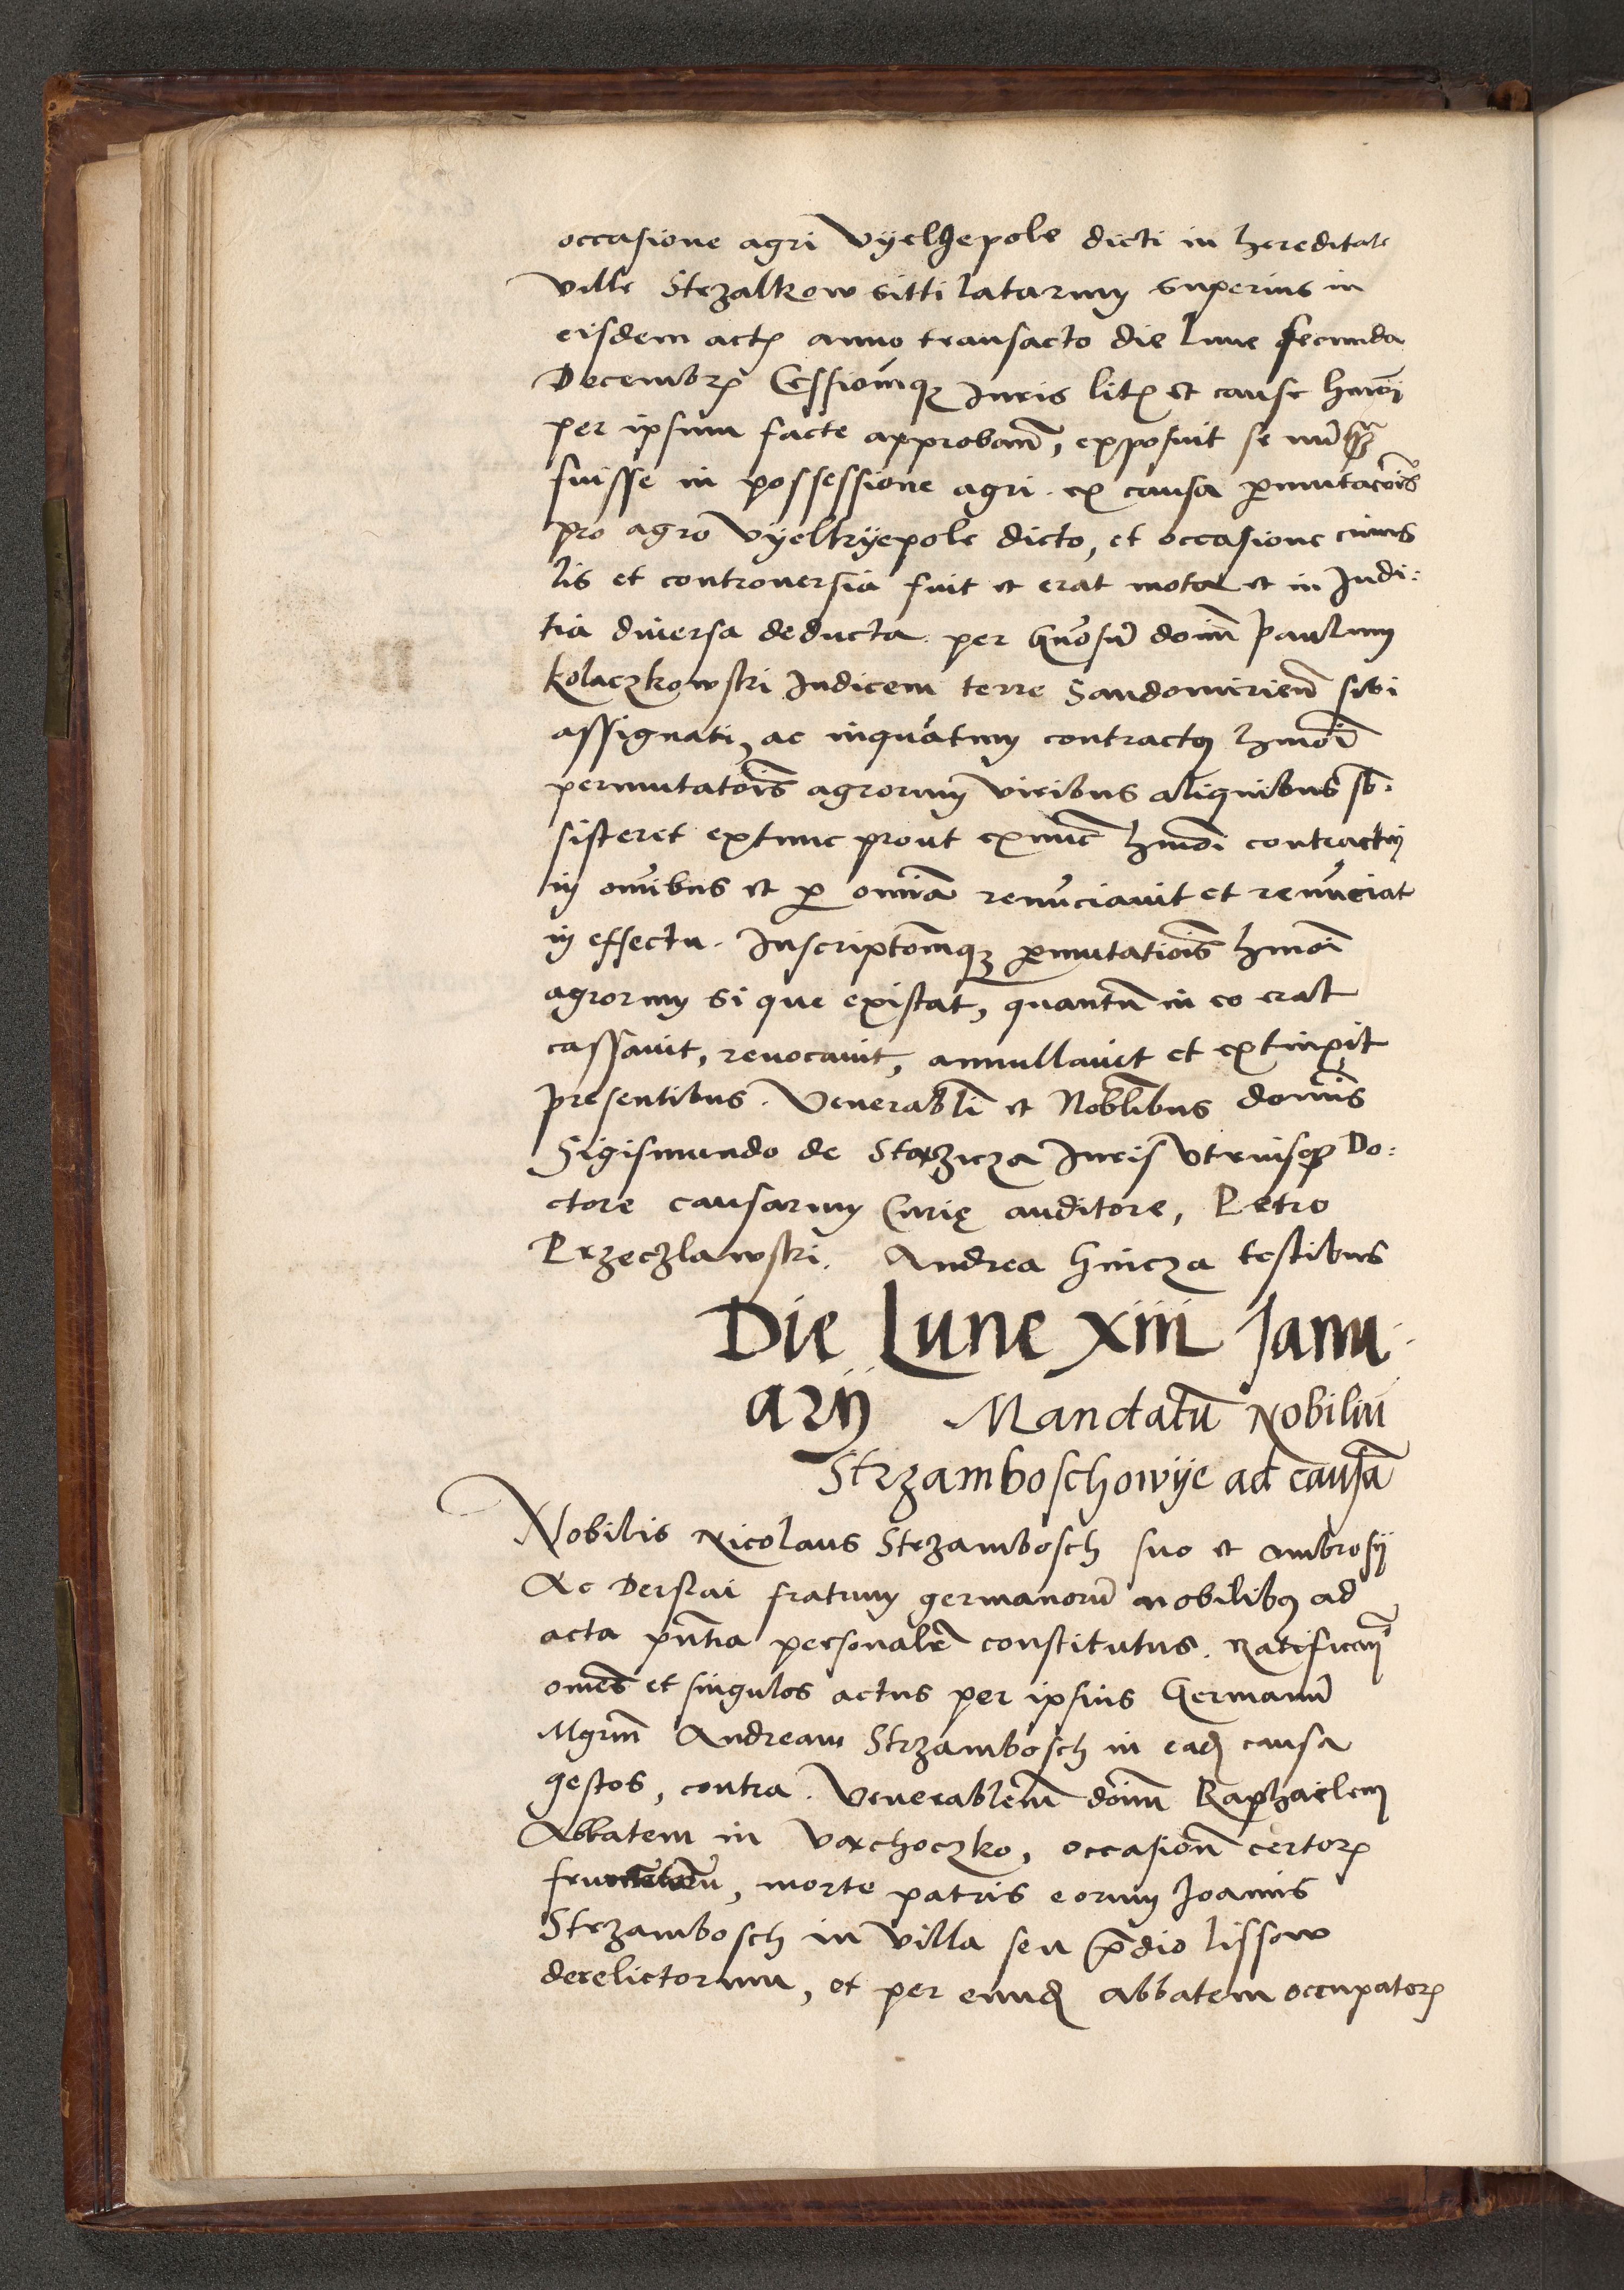 occasione agri Vyelgepole dicti in hereditate
ville Strzalkow sitti latarum superius in
eisdem actꝭ anno transacto die lune secunda
Decembrꝭ Cessionēqꝫ Iuris litꝭ et cause hmōi
per ipsum facte approbanē, exposuit se nūqꝫ
fuisse in possessione agri ex causa ꝑmutacōis
pro agro Vyelkyepole dicto, et occasione cuius
lis et controuersia fuit et erat mota et in Iudi:
tia diuersa deducta per Gnōsū doīm Paulum
Kolaczkowski Iudicem terre Sandomirieñ sibi
assignati, ac inquātum contractꝰ hmōi
permutatōis agrorum viribus aliquibus sb:
sisteret extunc prout exnūc hmōi contractui
in omībus et ꝑ omīa renūciauit et renūciat
in effectu. Inscriptōemqꝫ ꝑmutatiōis hmōi
agrorum si que existat, quantū in eo erat
cassauit, reuocauit, annullauit et extinxit
presentibus. Venerabli et Noblibus domīs
Sigismundo de Stęzicza Iuris vtriusqꝫ Do:
ctore causarum Curię auditore, Petro
Przeczlawski. Andrea Hincza testibus
Die Lune xiii Janu
arij Mandatū Nobiliū
Strzamboschowye ad causā
Nobilis Nicolaus Strzambosch suo et Ambrosij
Ac Derslai fratrum germanorū nobilibꝰ ad
acta pn̄tia personalr̄ constitutus. Ratificañ
omēs et singulos actus per ipsius Germanū
Mgrm̄ Andream Strzambosch in eadꝫ causa
gestos, contra Venerablem̄ doīm Raphaelem
Abbatem in Vąchoczko, occasioñ certorꝫ
frumētorū, morte patris eorum Joannis
Strzambosch in villa seu p̄dio lissow
derelictorum, et per eundꝫ abbatem occupatorꝫ